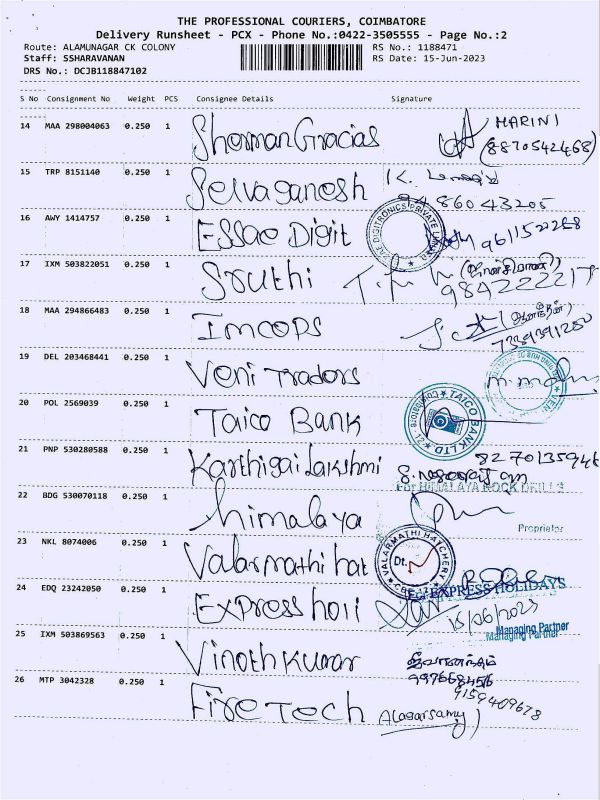 THE PROFESSIONAL COURIERS, COIMBATORE
Delivery Runsheet - PCX - Phone No.:0422-3505555 - Page No.:2
Route: ALAMUNAGAR CK COLONY RS No.: 1188471
Staff: SSHARAVANAN RS Date: 15-Jun-2023
DRS No.: DCJB118847102
S No Consignment No Weight PCS Consignee Details Signature
14 MAA 298004063 0.250 1 Sharman Gracias HARINI
(8870542468)
15 TRP 8151140 0.250 1 Selvaganesh K.
94 860 43205
16 AWY 1414757 0.250 1 Essae Digit 9611522258
DIGITRONICS PRIVATE
17 IXM 503822051 0.250 1 Sruthi
984222217
18 MAA 294866483 0.250 1 Imcops
7339391280
19 DEL 203468441 0.250 1 Veni Tradors
20 POL 2569039 0.250 1 Taico Bank
TAICO BANK LTD
21 PNP 530280588 0.250 1 Karthigai Lakshmi 8270135946
For HIMALAYA ROCK DRILLS
22 BDG 530070118 0.250 1 himalaya
Proprietor
23 NKL 8074006 0.250 1 Valarmathi hat
VALARMATHI HATCHERY
Dt.
For EXPRESS HOLIDAYS
24 EDQ 23242050 0.250 1 Express holi
15/06/2023
Managing Partner
Managing Partner
25 IXM 503869563 0.250 1 Vinoth kumar ஜீவானந்தம்
997668456
26 MTP 3042328 0.250 1 Fire Tech Alagarsamy)
9159409678